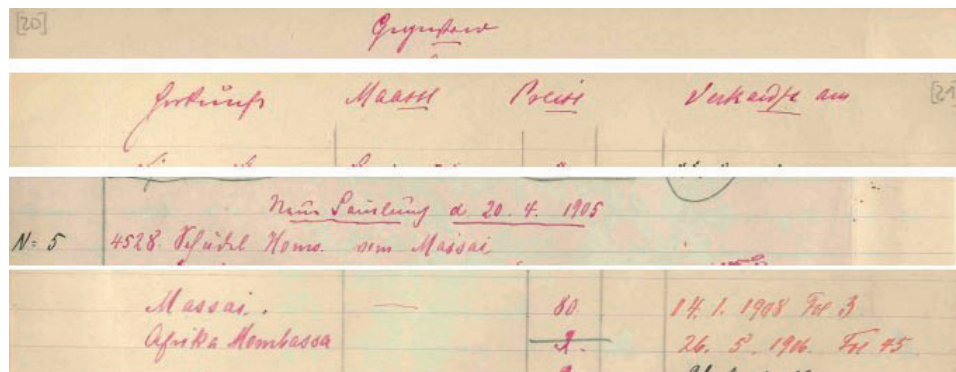 [20] Gegenstand
Herkunft Maasse Preise Verkauft an [21]
Neue Samlung d 20. 4. 1905
N: 5 4528 Schädel Homo. Massai
Massai. — 80 14. 1. 1908 Fol 3
Afrika Mombassa 2. 26. 5. 1906. Fol 45